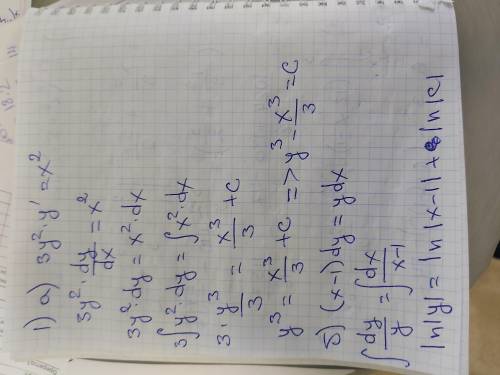 1) а) 3y²·y' = x²
3y²·dy/dx = x²
3y²·dy = x²·dx
3∫y²·dy = ∫x²·dx
3·y³/3 = x³/3 + C
y³ = x³/3 + C => y³ - x³/3 = C
б) (x-1)dy = ydx
∫dy/y = ∫dx/x-1
ln|y| = ln|x-1| + ln|C|